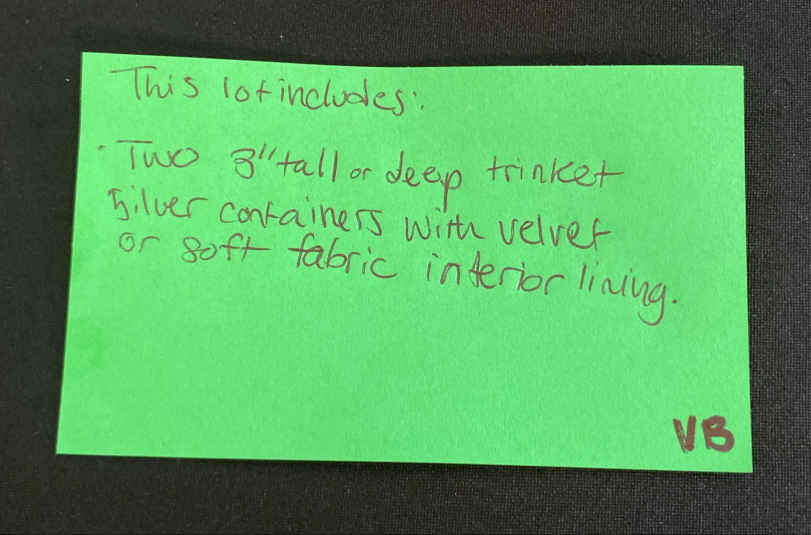 This lot includes:
· Two 3" tall or deep trinket
silver containers with velvet
or soft fabric interior lining.
VB